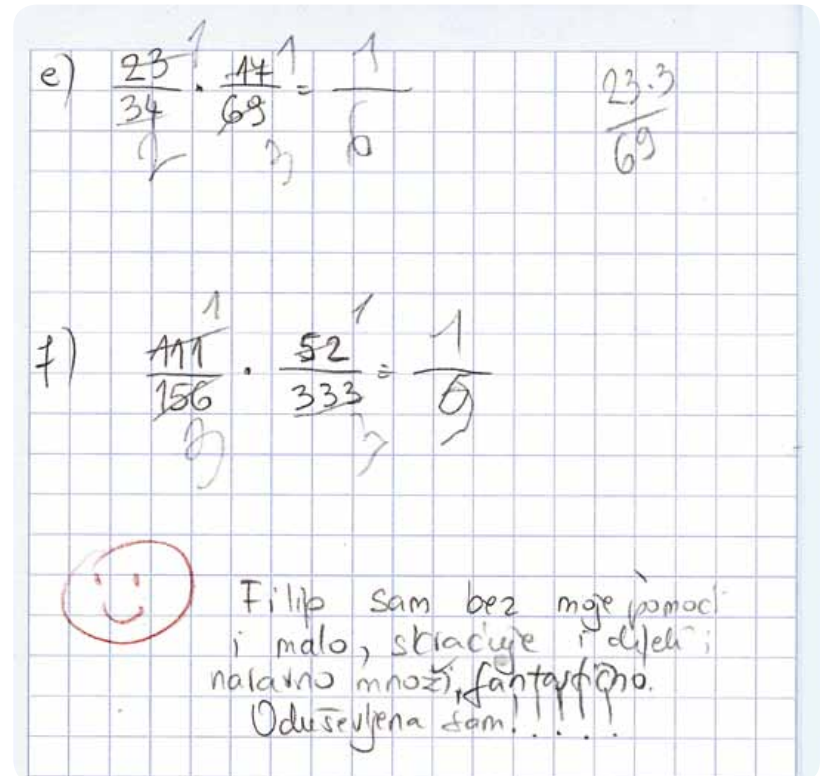 e) 23/34 · 17/69 = 1/6
1 1
2 3
23·3/69
f) 111/156 · 52/333 = 1/9
1 1
3 3
Filip sam bez moje pomoći
i malo, skraćuje i dijeli i
naravno množi, fantastično.
Oduševljena sam!.....